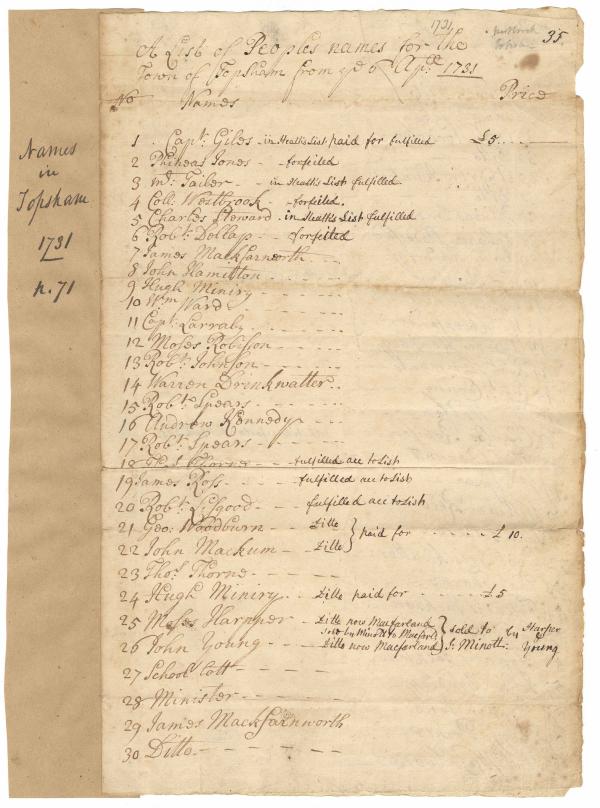 1731
35
A List of Peoples names for the
Town of Topsham from ye 6 Apr. 1731
No Names Price
Names
in
Topsham
1731
n.71
1 Capt. Giles - in Heath's List paid for fulfilled £5
2 Phineas Jones - forfeited
3 Mr. Tailer - in Heath's List fulfilled.
4 Coll. Westbrook - forfeited.
5 Charles Steward - in Heath's List fulfilled
6 Robt. Dollap - forfeited
7 James Mackfarnorth
8 John Hamilton
9 Hugh Miniry
10 Wm Ward
11 Capt. Larraby
12 Moses Robison
13 Robt. Johnson
14 Warren Drinkwatter
15 Robt. Spears
16 Andrew Kennedy
17 Robt. Spears
18 Thos. Thorne - fulfilled acc to List
19 James Ross - fulfilled acc to List
20 Robt. Lifgood - fulfilled acc to List
21 Geo: Woodburn - Ditto } paid for £10.
22 John Mackum - Ditto
23 Thos. Thorne
24 Hugh Miniry - Ditto paid for £5
25 Moses Harpper - Ditto now Macfarland } sold to J. Minott: by Harper & Young
sold by Minott to Macfarld
26 John Young - Ditto now Macfarland
27 School Lott
28 Minister
29 James Mackfarnworth
30 Ditto